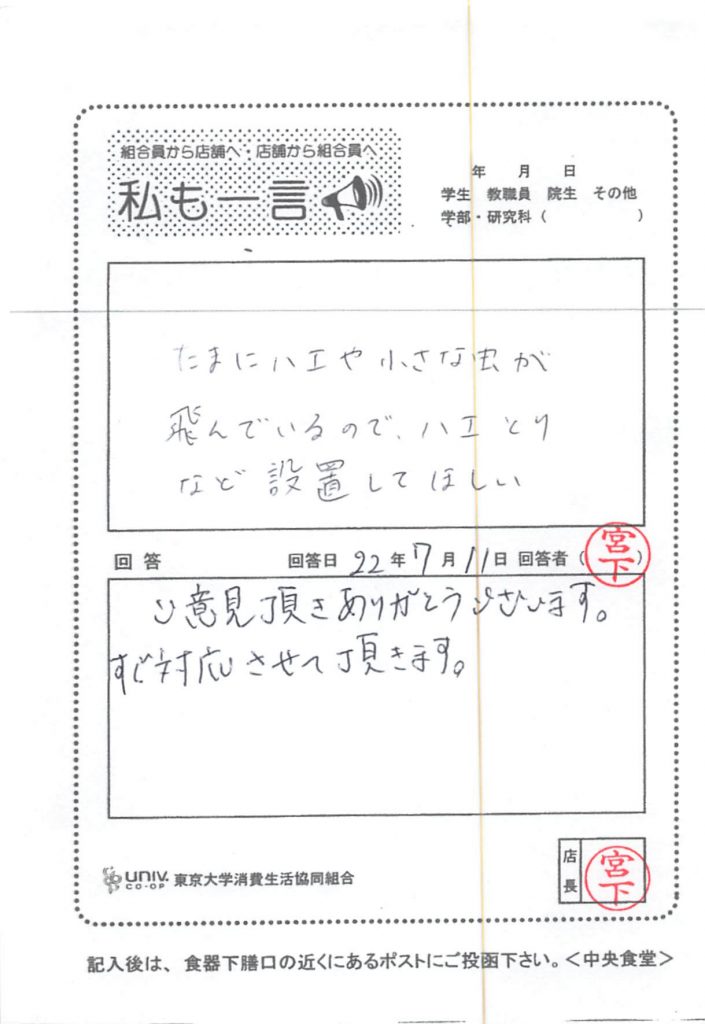 組合員から店舗へ・店舗から組合員へ
私も一言
年 月 日
学生 教職員 院生 その他
学部・研究科（ ）
たまにハエや小さな虫が
飛んでいるので、ハエとり
など設置してほしい
回答 回答日 22年7月11日 回答者（宮下）
ご意見頂きありがとうございます。
すぐ対応させて頂きます。
UNIV. CO-OP 東京大学消費生活協同組合
店長 宮下
記入後は、食器下膳口の近くにあるポストにご投函下さい。＜中央食堂＞